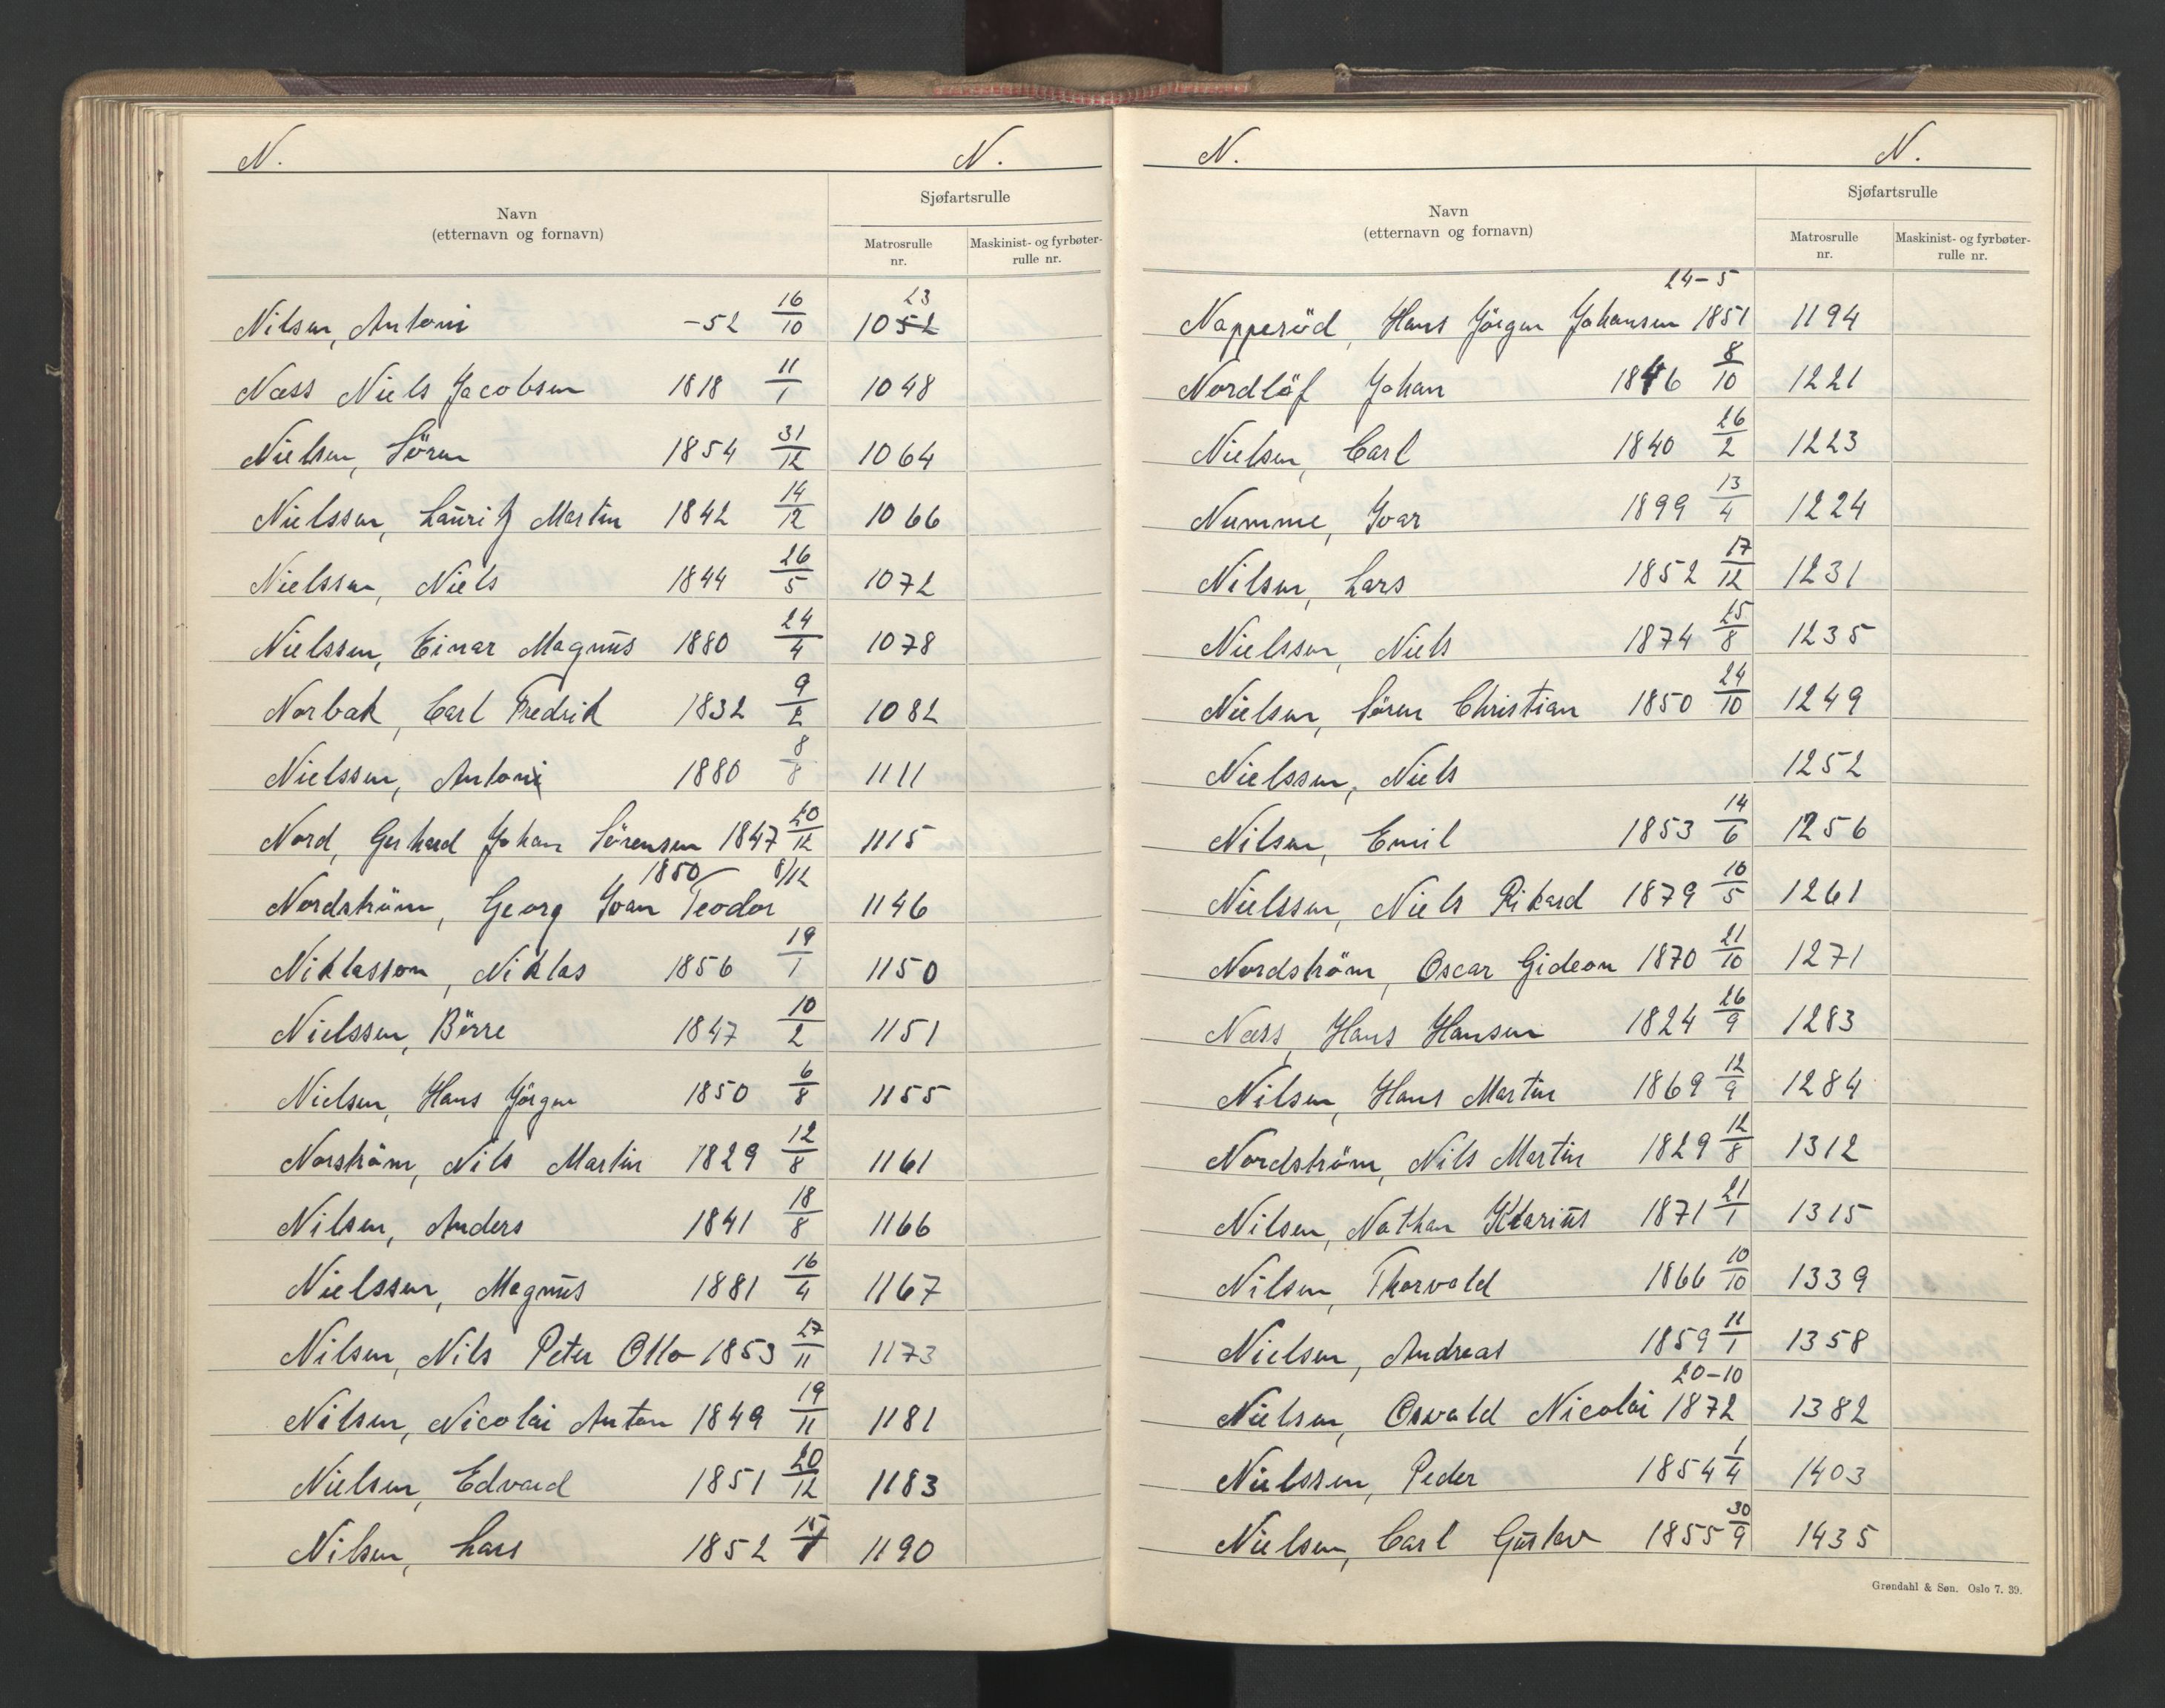 N. N.
Navn
(etternavn og fornavn)
Sjøfartsrulle
Matrosrulle nr.
Maskinist- og fyrbøter-rulle nr.
Nilsen, Antoni -52 16/10 1052 23
Næss Niels Jacobsen 1818 11/1 1048
Nielsen, Sören 1854 31/12 1064
Nielssen, Lauritz Martin 1842 14/12 1066
Nielssen, Niels 1844 26/5 1072
Nielssen, Einar Magnus 1880 24/4 1078
Norbak, Carl Fredrik 1832 9/2 1082
Nielssen, Antoni 1880 8/8 1111
Nord, Gerhard Johan Sörensen 1847 20/12 1115
Nordström, Georg Ivan Teodor 1850 8/12 1146
Niklasson, Niklas 1856 19/1 1150
Nielssen, Börre 1847 10/2 1151
Nielsen, Hans Jörgen 1850 6/8 1155
Norström, Nils Martin 1829 12/8 1161
Nilsen, Anders 1841 18/8 1166
Nielssen, Magnus 1881 16/4 1167
Nilsen, Nils Peter Otto 1853 27/11 1173
Nilsen, Nicolai Anton 1849 19/11 1181
Nielsen, Edvard 1851 20/12 1183
Nilsen, Lars 1852 15/1 1190
N. N.
Navn
(etternavn og fornavn)
Sjøfartsrulle
Matrosrulle nr.
Maskinist- og fyrbøter-rulle nr.
Napperöd, Hans Jörgen Johansen 24-5 1851 1194
Nordlöf Johan 1846 8/10 1221
Nielsen, Carl 1840 26/2 1223
Numme, Ivar 1899 13/4 1224
Nilsen, Lars 1852 17/12 1231
Nielssen, Niels 1874 25/8 1235
Nielsen, Sören Christian 1850 24/10 1249
Nielssen, Niels 1252
Nilsen, Emil 1853 14/6 1256
Nielssen, Niels Rikard 1879 10/5 1261
Nordström, Oscar Gideon 1870 21/10 1271
Næss, Hans Hansen 1824 26/9 1283
Nilsen, Hans Martin 1869 12/9 1284
Nordström, Nils Martin 1829 12/8 1312
Nilsen, Nathan Klarius 1871 21/1 1315
Nilsen, Thorvald 1866 10/10 1339
Nielsen, Andreas 1859 11/1 1358
Nielsen, Oswald Nicolai 20-10 1872 1382
Nielssen, Peder 1854 1/4 1403
Nielsen, Carl Gustav 1855 30/9 1435
Grøndahl & Søn. Oslo 7. 39.